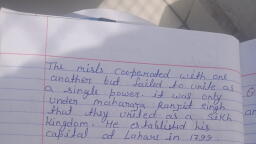 The misls cooperated with one
another but failed to unite as
a single power. it was only
under maharaja Ranjit singh
that they united as a Sikh
kingdom. He established his
capital at Lahore in 1799
G
an